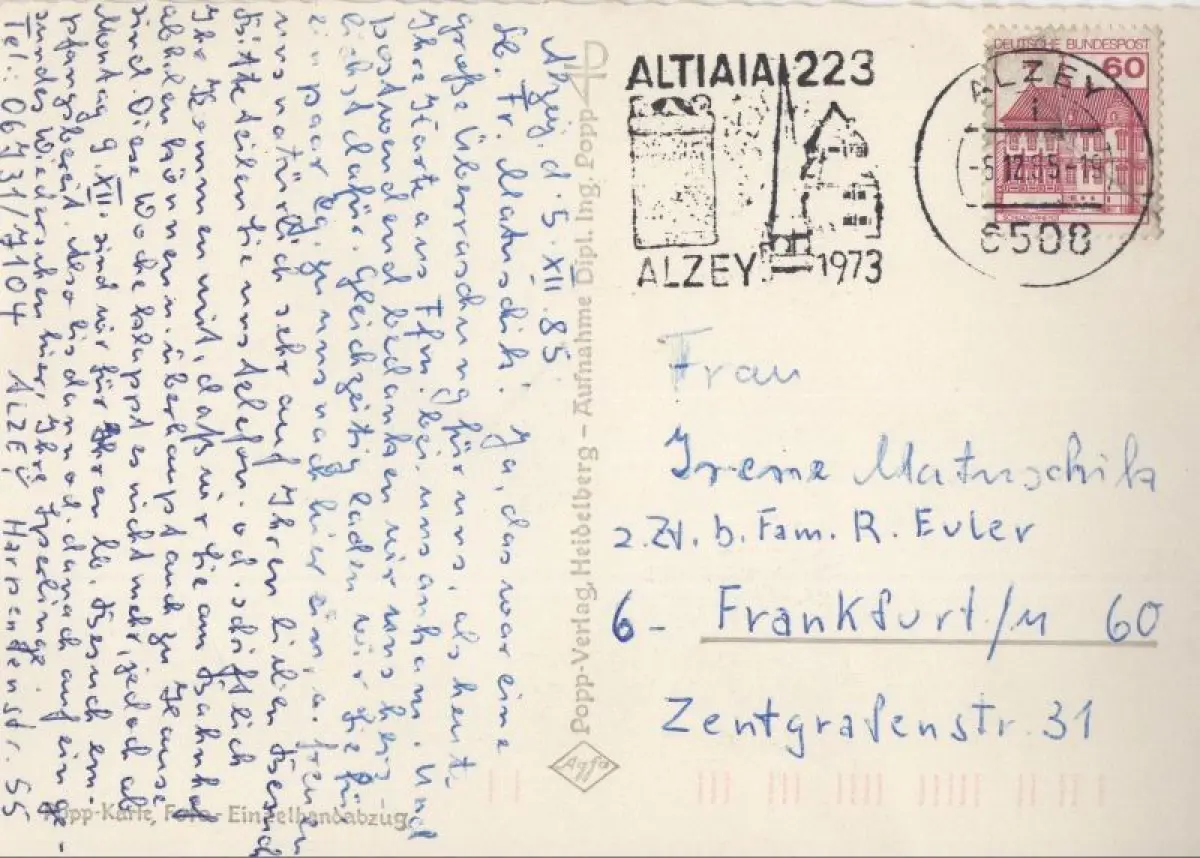 Alzey, d. 5. XII. 85.
lb. Fr. Matuschik! Ja, das war eine
große Überraschung für uns, als heut.
Ihre Karte aus Ffm. bei uns ankam. Und
postwendend bedanken wir uns herz-
lichst dafür. Gleichzeitig laden wir Sie für
ein paar Tg. zu uns nach hier ein, u. freuen
uns natürlich sehr auf Ihren lieben Besuch
Bitte teilen Sie uns telefon. od. schriftlich
Ihr Kommen mit, daß wir Sie am Bahnhof
abholen können u. überhaupt auch zu Hause
sind. Diese Woche klappt es nicht mehr, jedoch ab
Montag 9. XII. sind wir für Ihren lb. Besuch em-
pfangsbereit. Also bis dann od. danach auf ein ge-
sundes Wiedersehen hier, Ihre
Tel: 06731/7104 ALZEY Harxenstr. 55
Popp-Karte, Foto-Einzelhandabzug
Popp-Verlag, Heidelberg – Aufnahme Dipl. Ing. Popp
Agfa
ALTIAIA 223
ALZEY 1973
DEUTSCHE BUNDESPOST
60
ALZEY
i
-6.12.85-19
6508
Frau
Irene Matuschik
z. Zt. b. Fam. R. Euler
6- Frankfurt/M 60
Zentgrafenstr. 31